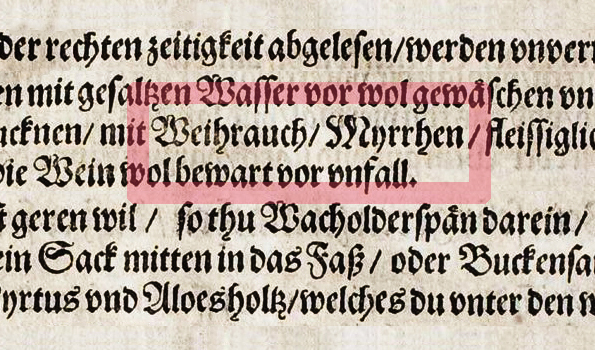 der rechten zeitigkeit abgelesen/werden vnver
en mit gesaltzen Wasser vor wol gewäschen vn
ucknen/ mit Weihrauch/ Myrrhen/ fleissiglic
die Wein wol bewart vor vnfall.
geren wil / so thu Wacholderspän darein /
ein Sack mitten in das Faß / oder Buckensa
yrtus vnd Aloesholtz/welches du vnter den w